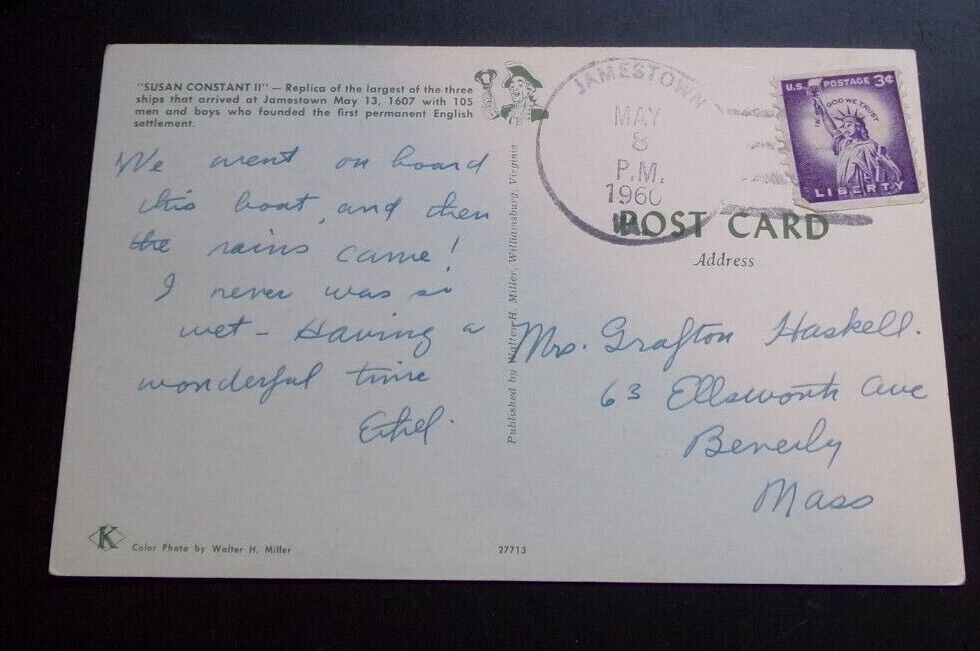 "SUSAN CONSTANT II" — Replica of the largest of the three
ships that arrived at Jamestown May 13, 1607 with 105
men and boys who founded the first permanent English
settlement.
We went on board
this boat, and then
the rains came!
I never was so
wet – Having a
wonderful time
Ethel.
K
Color Photo by Walter H. Miller
27713
Published by Walter H. Miller, Williamsburg, Virginia
JAMESTOWN
MAY
8
P.M.
1960
U.S. POSTAGE 3¢
IN GOD WE TRUST
LIBERTY
POST CARD
Address
Mrs. Grafton Haskell.
63 Ellsworth Ave
Beverly
Mass